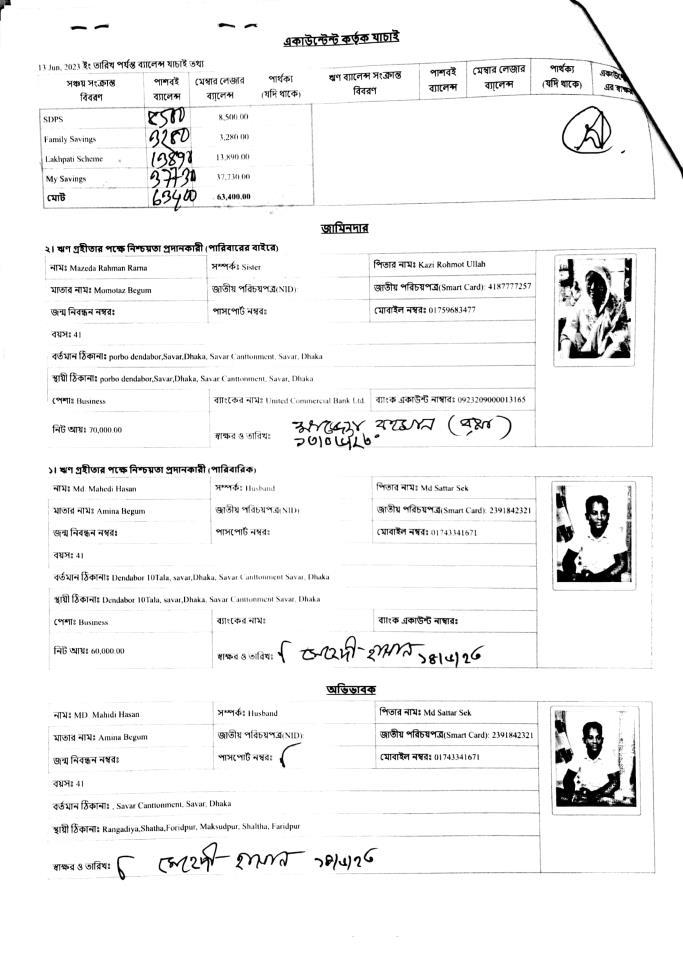 একাউন্টেন্ট কর্তৃক যাচাই
13 Jun, 2023 ইং তারিখ পর্যন্ত ব্যালেন্স যাচাই তথ্য
সঞ্চয় সংক্রান্ত বিবরণ পাশবই ব্যালেন্স মেম্বার লেজার ব্যালেন্স পার্থক্য (যদি থাকে) ঋণ ব্যালেন্স সংক্রান্ত বিবরণ পাশবই ব্যালেন্স মেম্বার লেজার ব্যালেন্স পার্থক্য (যদি থাকে) এর স্বাক্ষর
SDPS 8500 8,500.00
Family Savings 3280 3,280.00
Lakhpati Scheme 13890 13,890.00
My Savings 37730 37,730.00
মোট 63400 63,400.00
জামিনদার
২। ঋণ গ্রহীতার পক্ষে নিশ্চয়তা প্রদানকারী (পারিবারের বাইরে)
নামঃ Mazeda Rahman Rarna সম্পর্ক: Sister পিতার নামঃ Kazi Rohmot Ullah
মাতার নামঃ Momotaz Begum জাতীয় পরিচয়পত্র(NID): জাতীয় পরিচয়পত্র(Smart Card): 4187777257
জন্ম নিবন্ধন নম্বরঃ পাসপোর্ট নম্বর: মোবাইল নম্বর: 01759683477
বয়স: 41
বর্তমান ঠিকানাঃ porbo dendabor,Savar,Dhaka, Savar Canttonment, Savar, Dhaka
স্থায়ী ঠিকানাঃ porbo dendabor,Savar,Dhaka, Savar Canttonment, Savar, Dhaka
পেশাঃ Business ব্যাংকের নাম: United Commercial Bank Ltd. ব্যাংক একাউন্ট নাম্বার: 0923209000013165
নিট আয়: 70,000.00 স্বাক্ষর ও তারিখ:
১। ঋণ গ্রহীতার পক্ষে নিশ্চয়তা প্রদানকারী (পারিবারিক)
নামঃ Md. Mahedi Hasan সম্পর্ক: Husband পিতার নাম: Md Sattar Sek
মাতার নাম: Amina Begum জাতীয় পরিচয়পত্র(NID) জাতীয় পরিচয়পত্র(Smart Card): 2391842321
জন্ম নিবন্ধন নম্বরঃ পাসপোর্ট নম্বর: মোবাইল নম্বর: 01743341671
বয়স: 41
বর্তমান ঠিকানাঃ Dendabor 10Tala, savar,Dhaka, Savar Canttonment Savar, Dhaka
স্থায়ী ঠিকানাঃ Dendabor 10Tala, savar,Dhaka, Savar Canttonment Savar, Dhaka
পেশাঃ Business ব্যাংকের নাম: ব্যাংক একাউন্ট নাম্বারঃ
নিট আয়: 60,000.00 স্বাক্ষর ও তারিখ: মেহেদী-হাসান
অভিভাবক
নামঃ MD Mahidi Hasan সম্পর্ক: Husband পিতার নাম: Md Sattar Sek
মাতার নাম: Amina Begum জাতীয় পরিচয়পত্র(NID): জাতীয় পরিচয়পত্র(Smart Card): 2391842321
জন্ম নিবন্ধন নম্বরঃ পাসপোর্ট নম্বর: মোবাইল নম্বর: 01743341671
বয়স: 41
বর্তমান ঠিকানাঃ , Savar Canttonment, Savar, Dhaka
স্থায়ী ঠিকানাঃ Rangadiya,Shatha,Foridpur, Maksudpur, Shaltha, Faridpur
স্বাক্ষর ও তারিখ: মেহেদী-হাসান